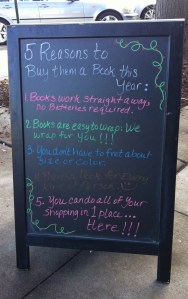 5 Reasons to
Buy them a Book this
Year:
1. Books work straight away,
no batteries required.
2. Books are easy to wrap: We
wrap for You!!!
3. You don't have to fret about
Size or Color.
Book for Every
5. You can do all of Your
Shopping in 1 place...
Here!!!